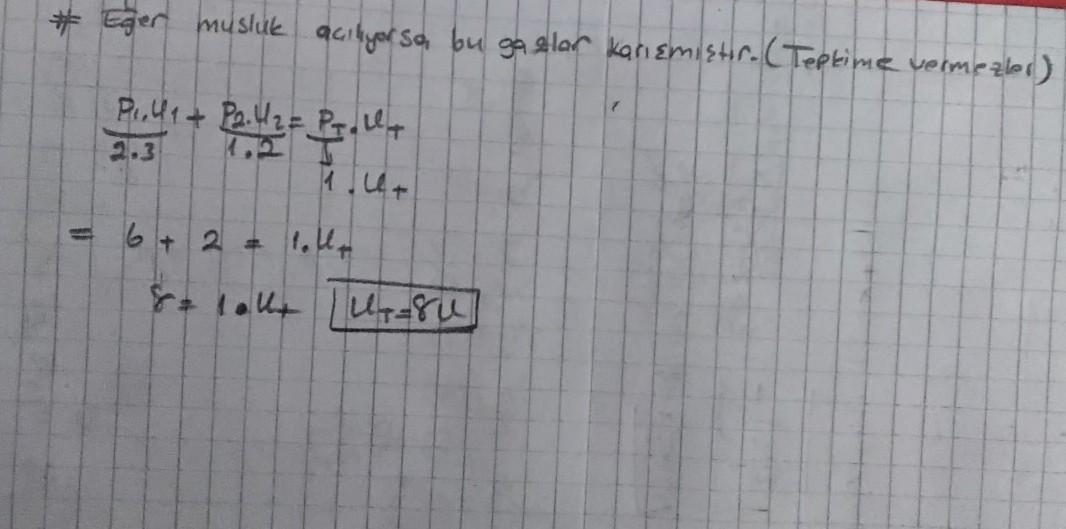 # Eğer musluk açılıyorsa, bu gazlar karışmıştır. (Tepkime vermezler)
P₁.V₁ + P₂.V₂ = P_T.V_T
2.3 1.2 1
1.V_T
= 6 + 2 = 1.V_T
8 = 1.V_T V_T = 8V